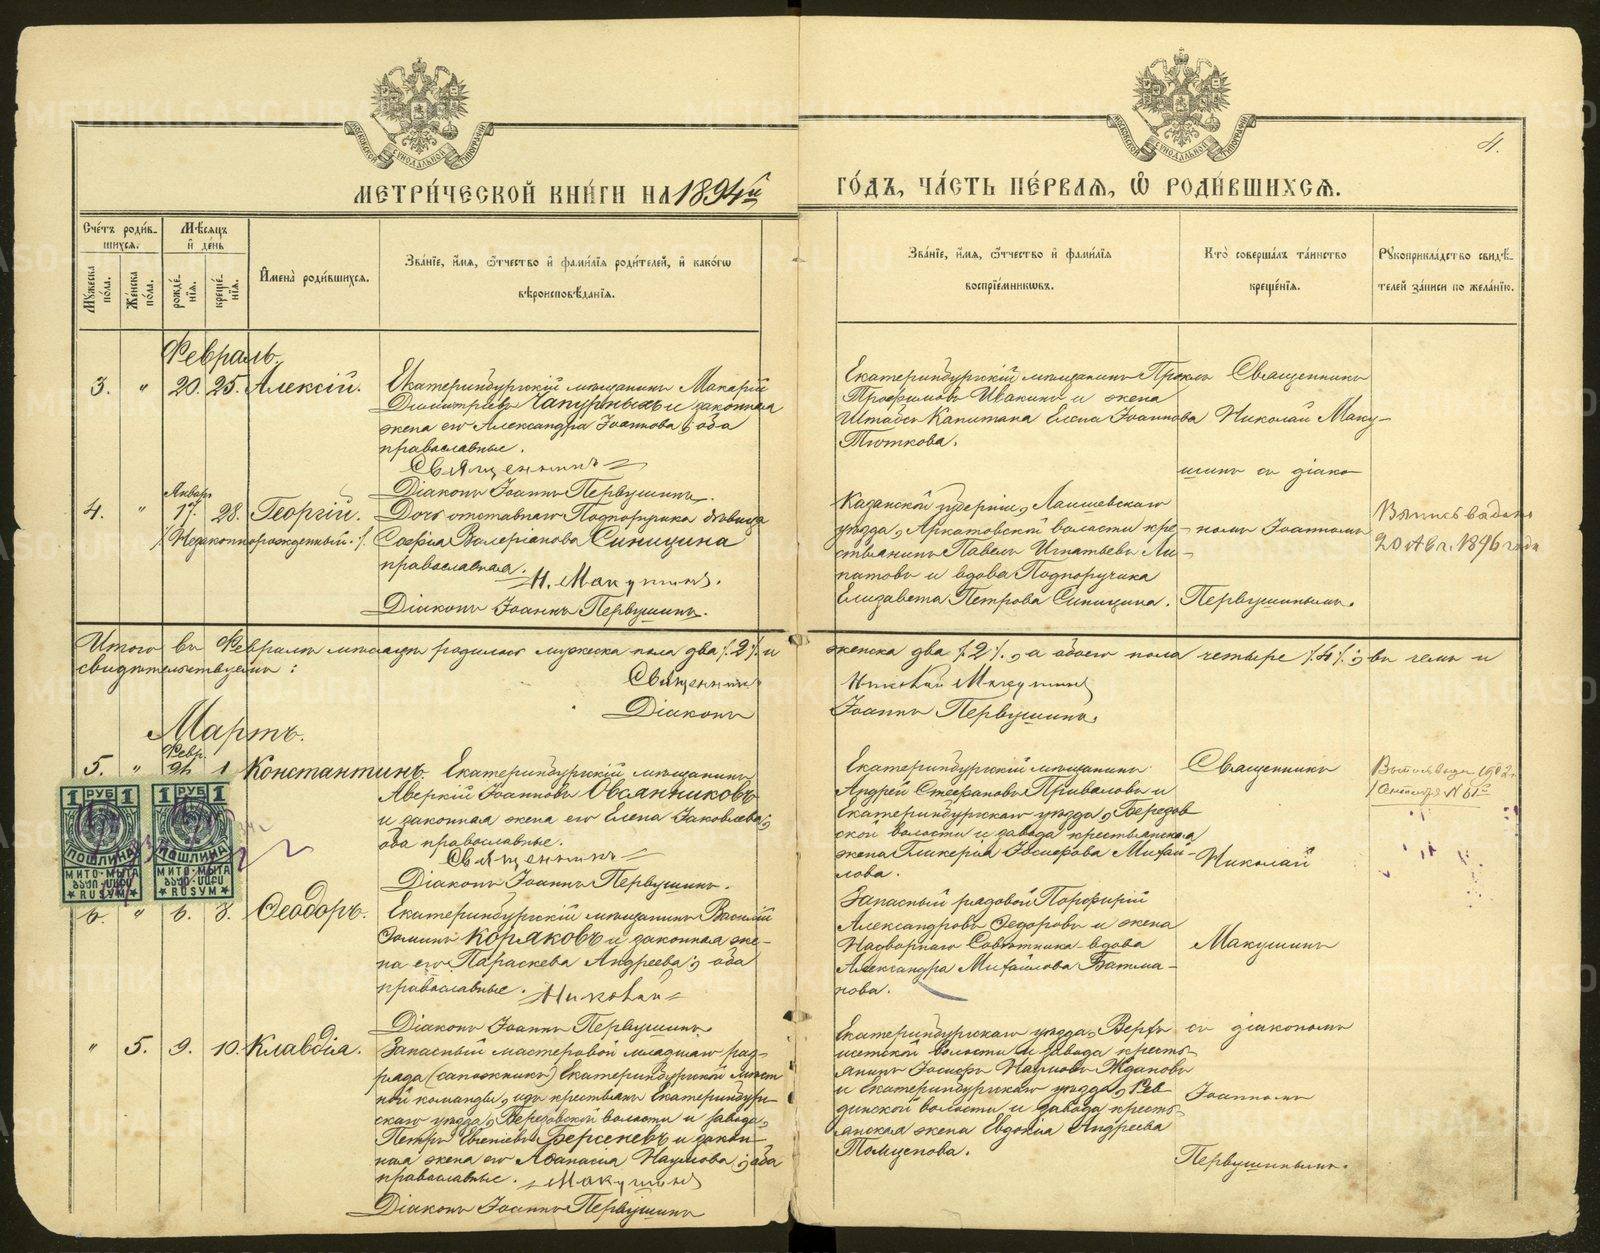 МОСКОВСКОЙ СѴНОДАЛЬНОЙ ТИПОГРАФІИ
МОСКОВСКОЙ СѴНОДАЛЬНОЙ ТИПОГРАФІИ
4.
МЕТРИ́ЧЕСКОЙ КНИ́ГИ НА 1894й
ГО́ДЪ, ЧА́СТЬ ПЕ́РВАѦ, Ѡ РОДИ́ВШИХСѦ.
Сче́тъ роди́в-
шихсѧ.
Мѣ́сѧцъ
и҆ де́нь
Мꙋ́жеска по́ла.
Же́нска по́ла.
рожде́-
нїѧ.
креще́-
нїѧ.
И҆мена̀ роди́вшихсѧ.
Зва́нїе, и҆́мѧ, ѻ҆́тчество и҆ фами́лїѧ роди́телей, и҆ како́гѡ
вѣроисповѣ́данїѧ.
Зва́нїе, и҆́мѧ, ѻ҆́тчество и҆ фами́лїѧ
воспрїе́мникѡвъ.
Кто̀ соверша́лъ та́инство
креще́нїѧ.
Рꙋкоприкла́дство свидѣ́-
телей за́писи по жела́нїю.
Февраль.
3. " 20. 25. Алексій.
Екатеринбургскій мѣщанинъ Макарій
Димитріевъ Чапурныхъ и законная
жена его Александра Іоаннова; оба
православные.
Священникъ
Діаконъ Іоаннъ Первушинъ.
Екатеринбургскій мѣщанинъ Проклъ
Трофимовъ Ивакинъ и жена
Штабсъ Капитана Елена Іоаннова
Тюткова.
Священникъ
Николай Маку-
шинъ съ діако-
Январь
4. " 17. 28. Георгій.
/Незаконнорожденный./
Дочь отставнаго Подпоручика дѣвица
Софія Валеріанова Синицина
православная.
Н. Макушинъ.
Діаконъ Іоаннъ Первушинъ.
Казанской губерніи, Лаишевскаго
уѣзда, Аркатовской волости кре-
стьянинъ Павелъ Игнатьевъ Ли-
патовъ и вдова Подпоручика
Елизавета Петрова Синицина.
номъ Іоанномъ
Первушинымъ.
Выпись выдана
20 Авг. 1896 года
Итого въ Февралѣ мѣсяцѣ родилось мужеска пола два /2/ и
женска два /2/, а обоего пола четыре /4/; въ чемъ и
свидѣтельствуемъ:
Священникъ
Николай Макушинъ
Діаконъ
Іоаннъ Первушинъ.
Мартъ.
Февр.
5. " 24 1 Константинъ.
Екатеринбургскій мѣщанинъ
Аверкій Іоанновъ Овсянниковъ
и законная жена его Елена Іаковлева;
оба православные.
Священникъ
Діаконъ Іоаннъ Первушинъ.
Екатеринбургскій мѣщанинъ
Андрей Стефановъ Приваловъ и
Екатеринбургскаго уѣзда, Березов
ской волости и завода крестьянская
жена Гликерія Іосифова Михай-
лова.
Священникъ
Николай
1 РУБ 1
1 РУБ 1
ПОШЛИНА
ПОШЛИНА
МИТО-МЫТА
МИТО-МЫТА
RUSYM
RUSYM
6. " 6. 8. Ѳеодоръ.
Екатеринбургскій мѣщанинъ Василій
Ѳоминъ Коряковъ и законная же-
на его Параскева Андреева; оба
православные.
Николай
Діаконъ Іоаннъ Первушинъ
Запасный рядовой Порфирій
Александровъ Ѳедоровъ и жена
Надворнаго Совѣтника - вдова
Александра Михайлова Батма-
нова.
Макушинъ
" 5. 9. 10. Клавдія.
Запасный мастеровой младшаго раз-
ряда (сапожникъ) Екатеринбургской мѣст
ной команды, изъ крестьянъ Екатеринбург-
скаго уѣзда, Березовской волости и завода,
Петръ Евгеніевъ Берсеневъ и закон-
ная жена его Аѳанасія Наумова; оба
православные.
Макушинъ
Діаконъ Іоаннъ Первушинъ
Екатеринбургскаго уѣзда, Верхъ
исетской волости и завода кресть-
янинъ Іосифъ Наумовъ Ждановъ
и Екатеринбургскаго уѣзда, Рев
динской волости и завода кресть-
янская жена Евдокія Андреева
Толщенова.
съ діакономъ
Іоанномъ
Первушинымъ.